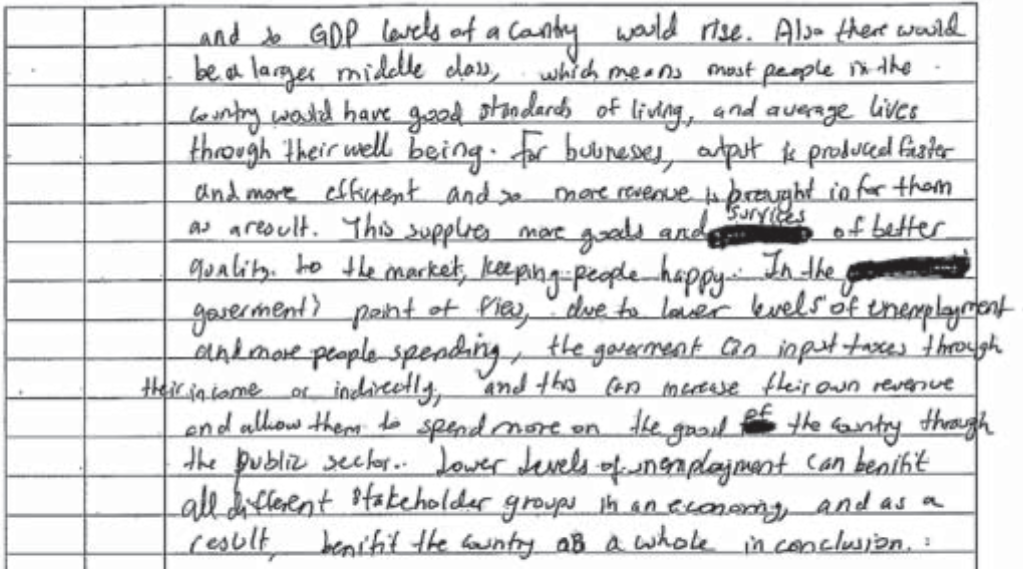 and so GDP levels of a country would rise. Also there would
be a larger middle class, which means most people in the
country would have good standards of living, and average lives
through their well being. For businesses, output is produced faster
and more efficient and so more revenue is brought in for them
as a result. This supplies more goods and survices of better
quality to the market, keeping people happy. In the
goverment's point of view, due to lower levels of unemployment
and more people spending, the goverment can input taxes through
their income or indirectly, and this can increase their own revenue
and allow them to spend more on the good of the country through
the public sector. Lower levels of unemployment can benifit
all different stakeholder groups in an economy, and as a
result, benifit the country as a whole in conclusion.